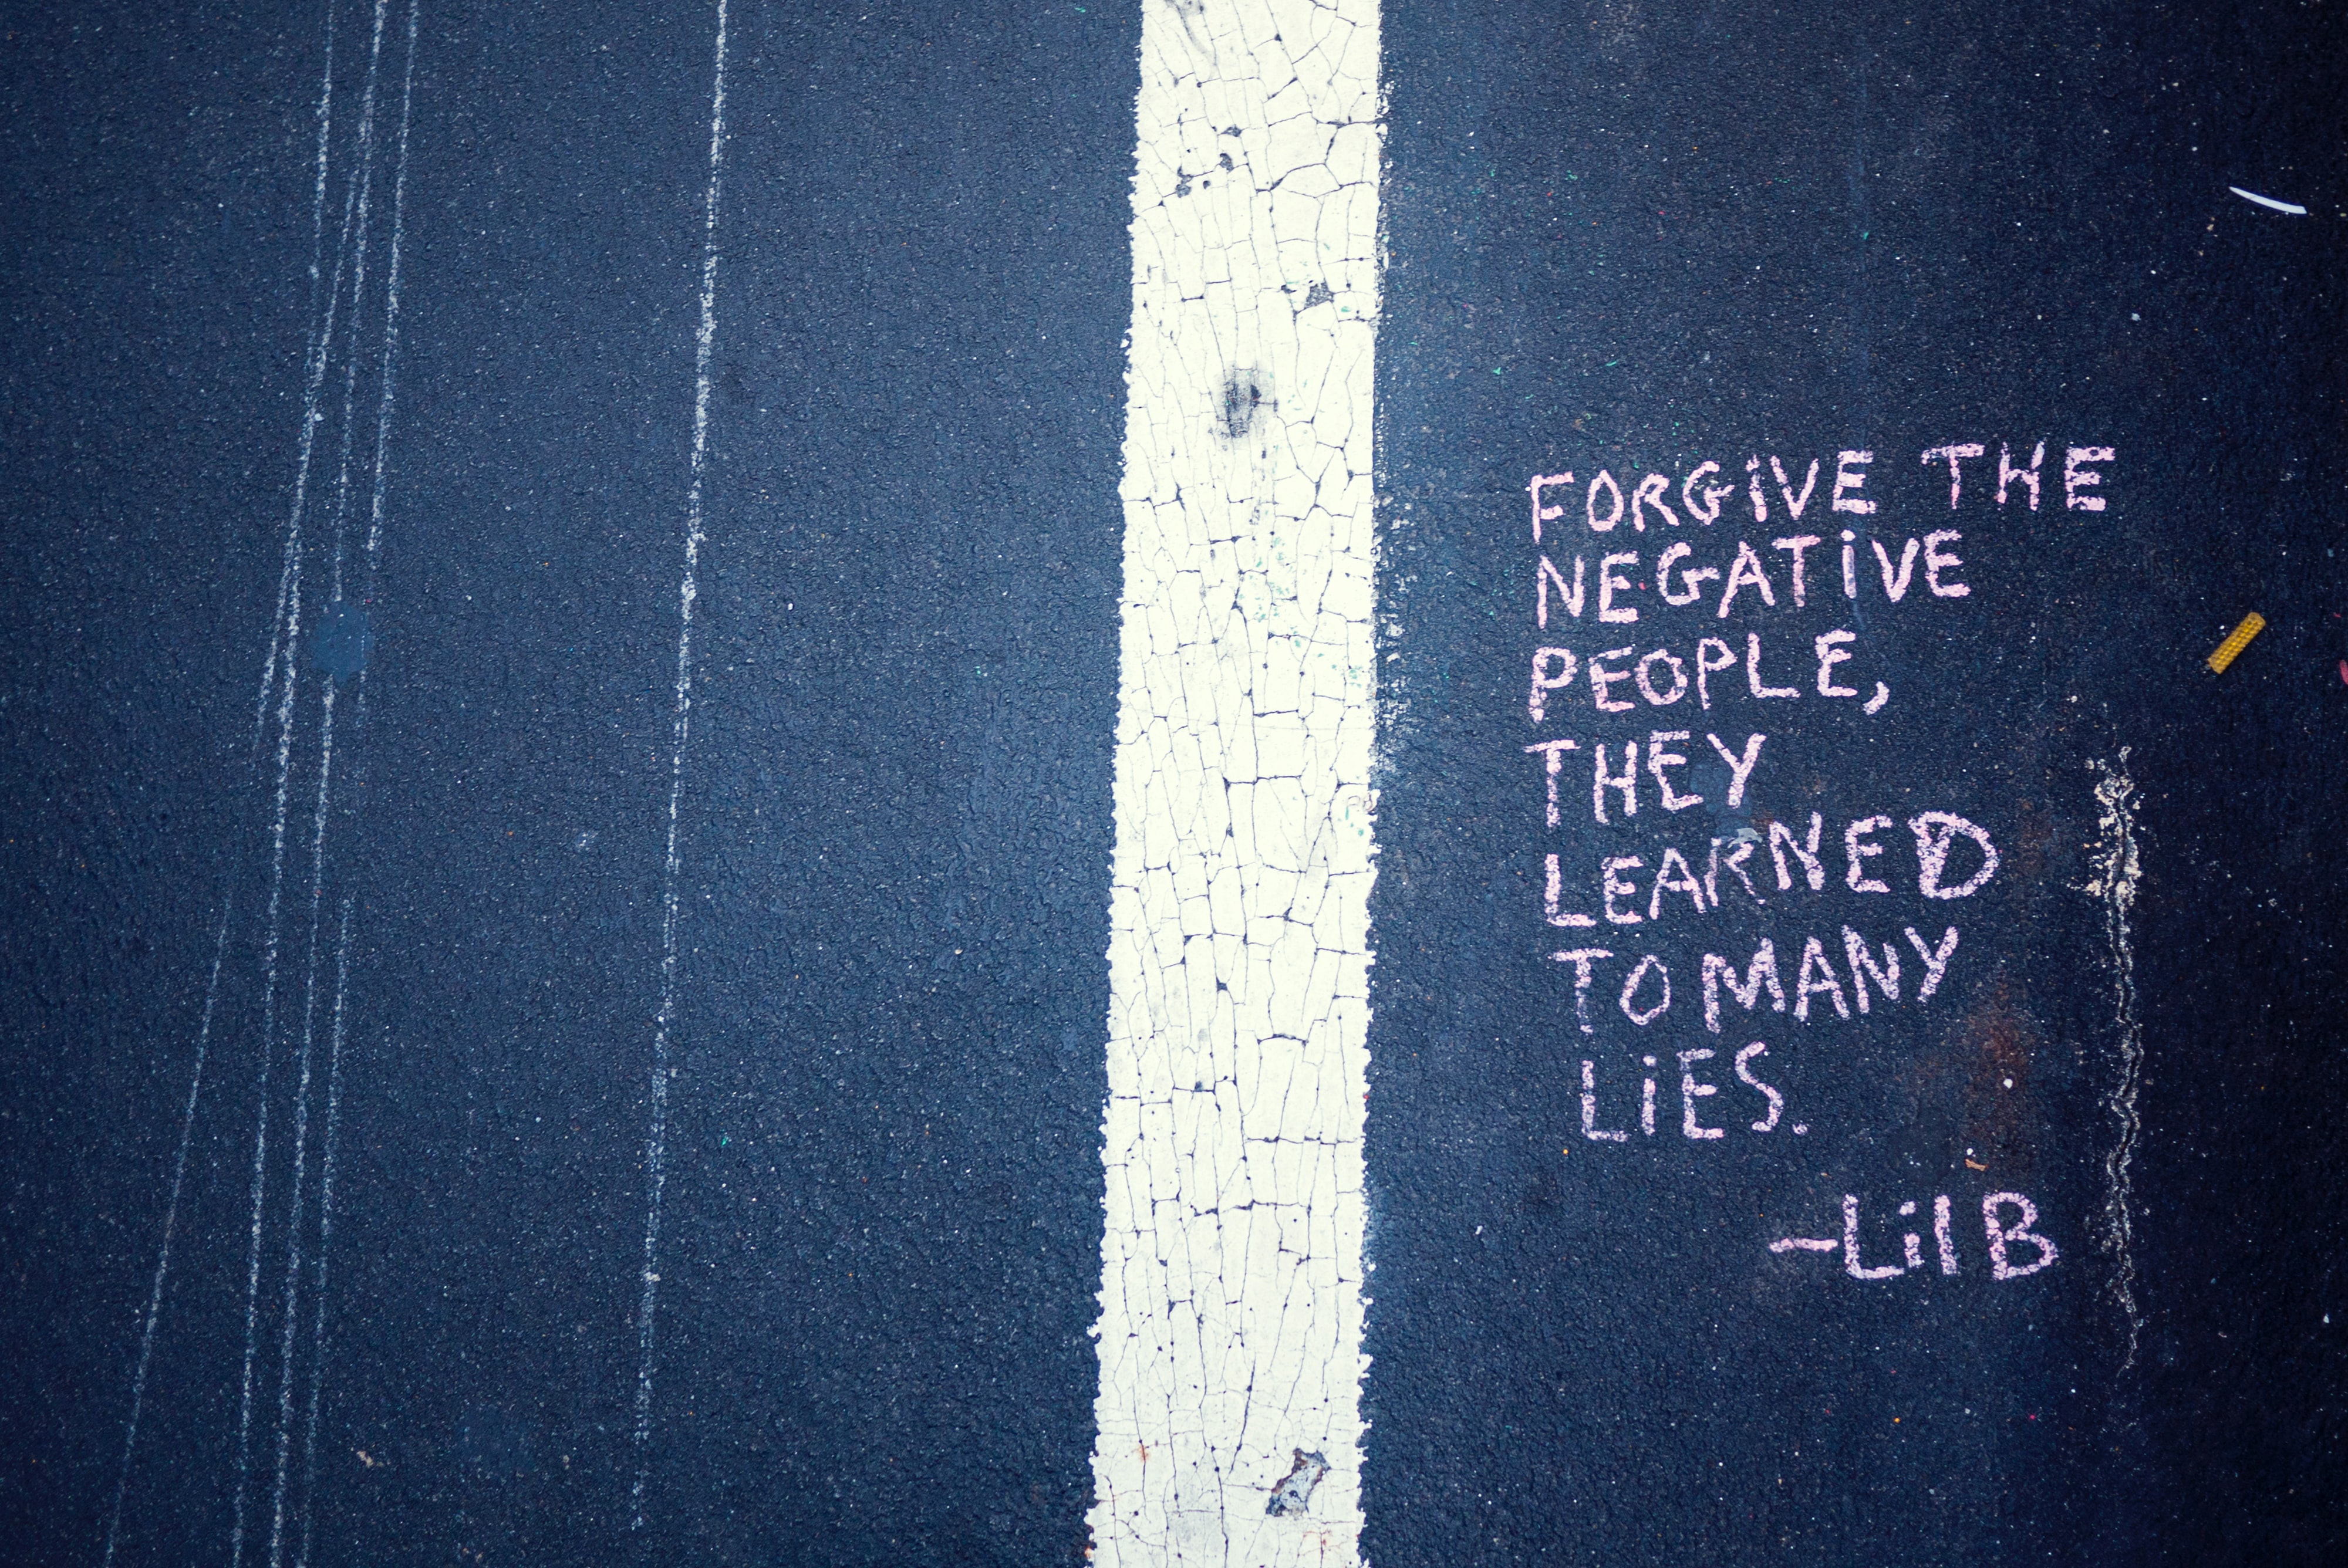 FORGiVE THE
NEGATiVE
PEOPLE,
THEY
LEARNED
TO MANY
LiES.
-Lil B